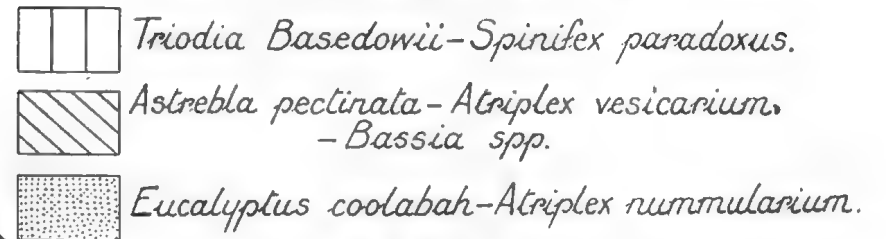 Triodia Basedowii-Spinifex paradoxus.
Astrebla pectinata-Atriplex vesicarium.
-Bassia spp.
Eucalyptus coolabah-Atriplex nummularium.